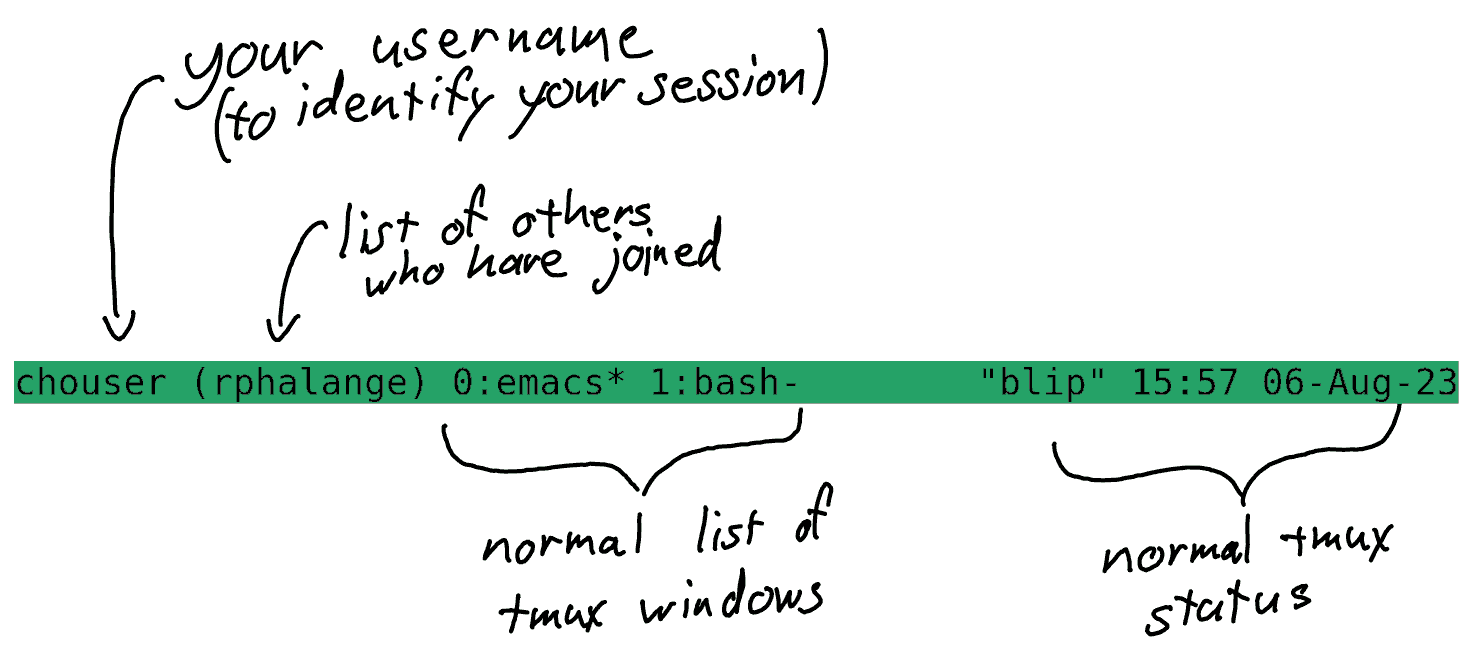 your username
(to identify your session)
list of others
who have joined
chouser (rphalange) 0:emacs* 1:bash- "blip" 15:57 06-Aug-23
normal list of
tmux windows
normal tmux
status